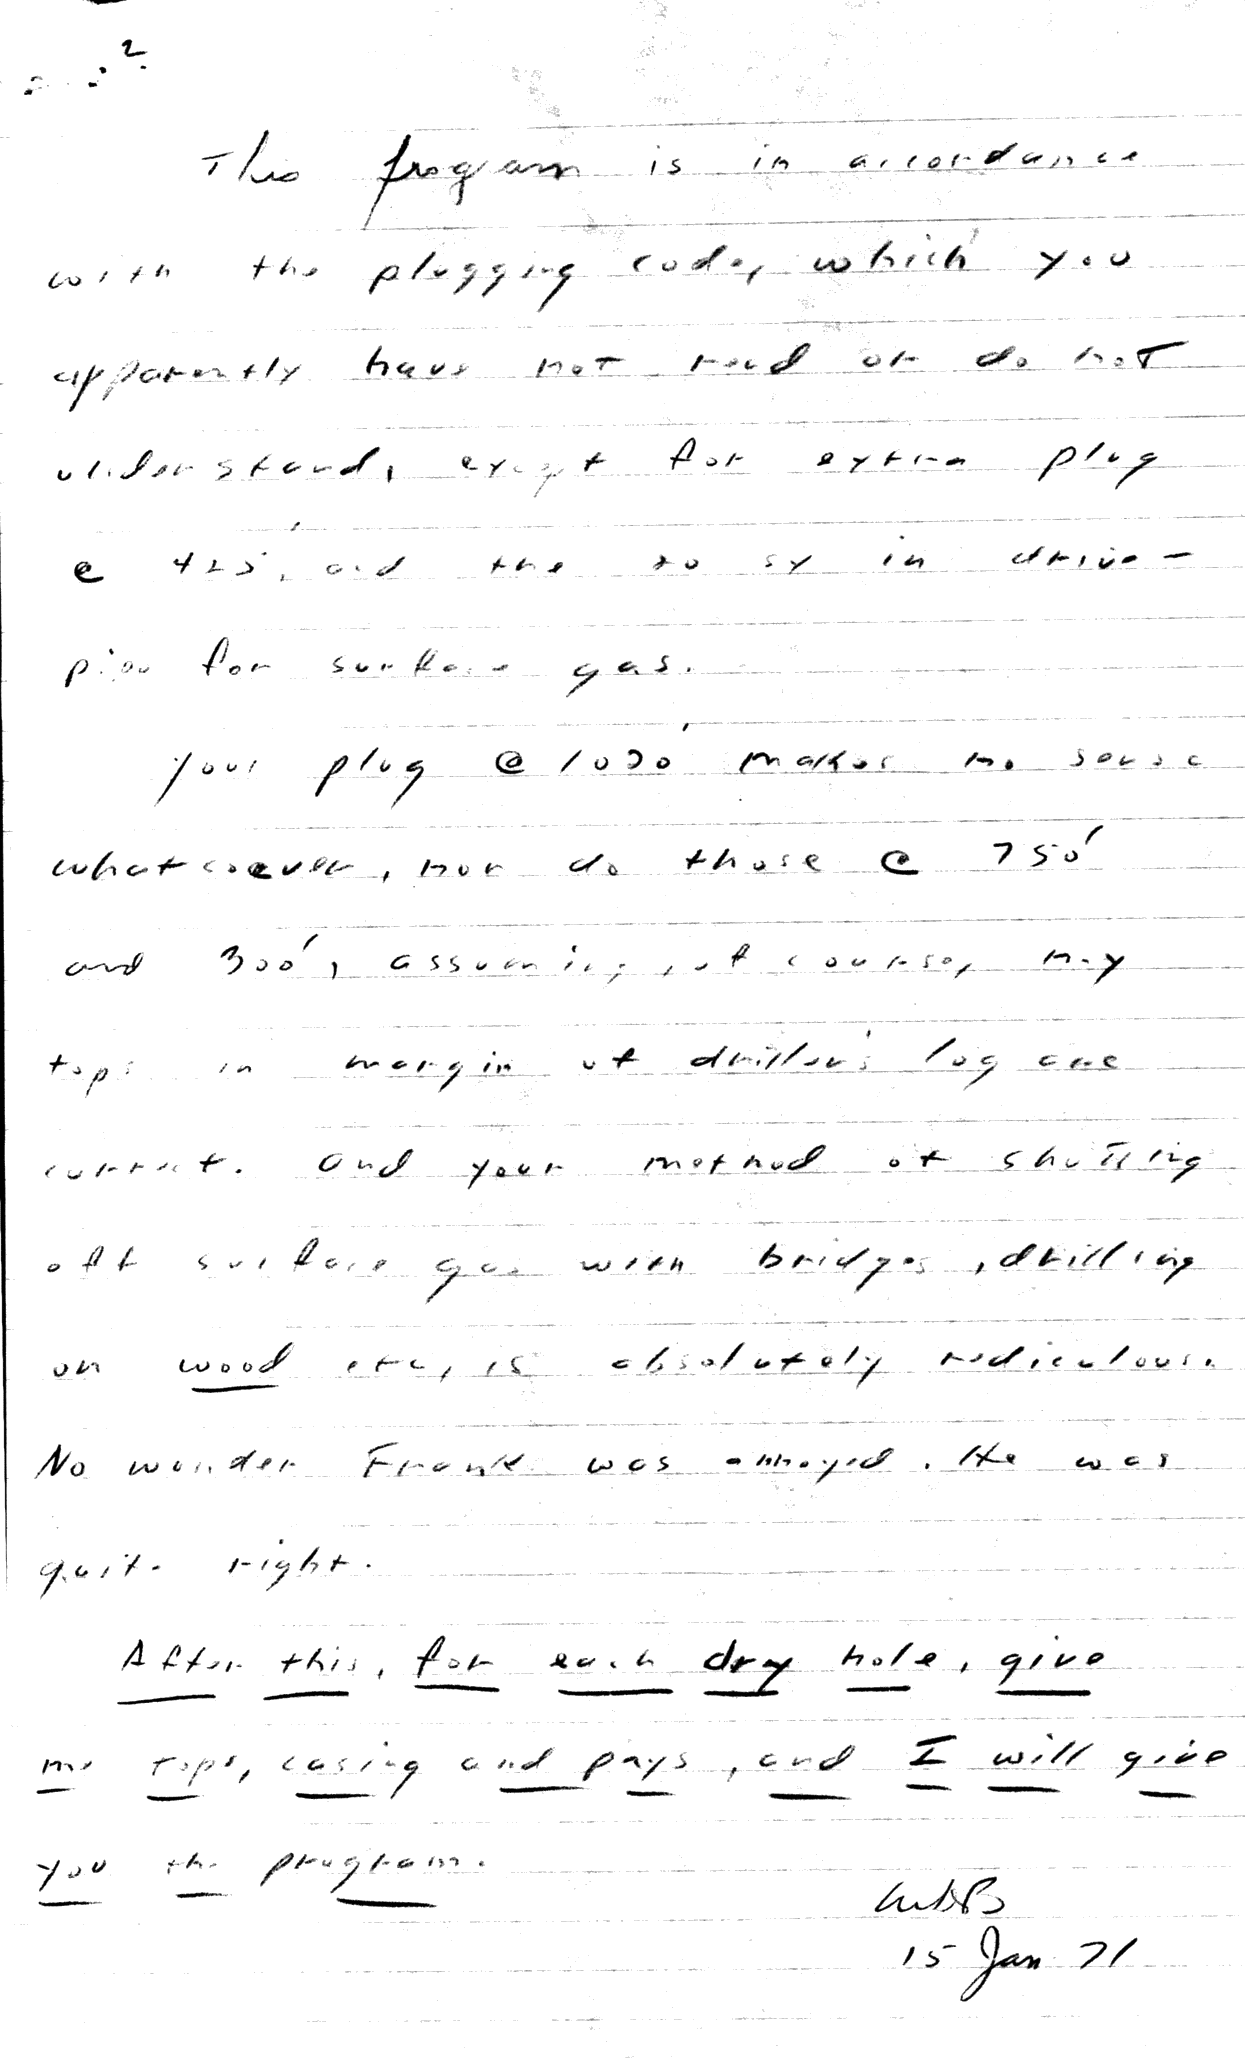 2.
This program is in accordance
with the plugging code, which you
apparently have not read or do not
understand, except for extra plug
@ 425', and the 20 sx in drive-
pipe for surface gas.
Your plug @ 1020' makes no sense
whatsoever, nor do those @ 750'
and 300', assuming, of course, my
tops in margin of driller's log are
correct. And your method of shutting
off surface gas with bridges, drilling
on wood etc, is absolutely rediculous.
No wonder Frank was annoyed. He was
quite right.
After this, for each dry hole, give
me tops, casing and pays, and I will give
you the program.
15 Jan 71